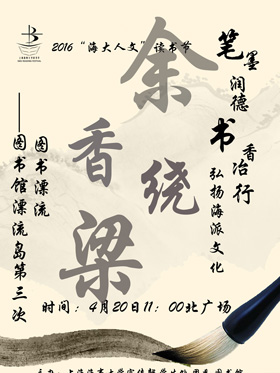 2016“海大人文”读书节
笔墨润德
书香冶行
弘扬海派文化
余香绕梁
图书漂流
——图书馆漂流岛第三次
时间：4月20日11：00北广场